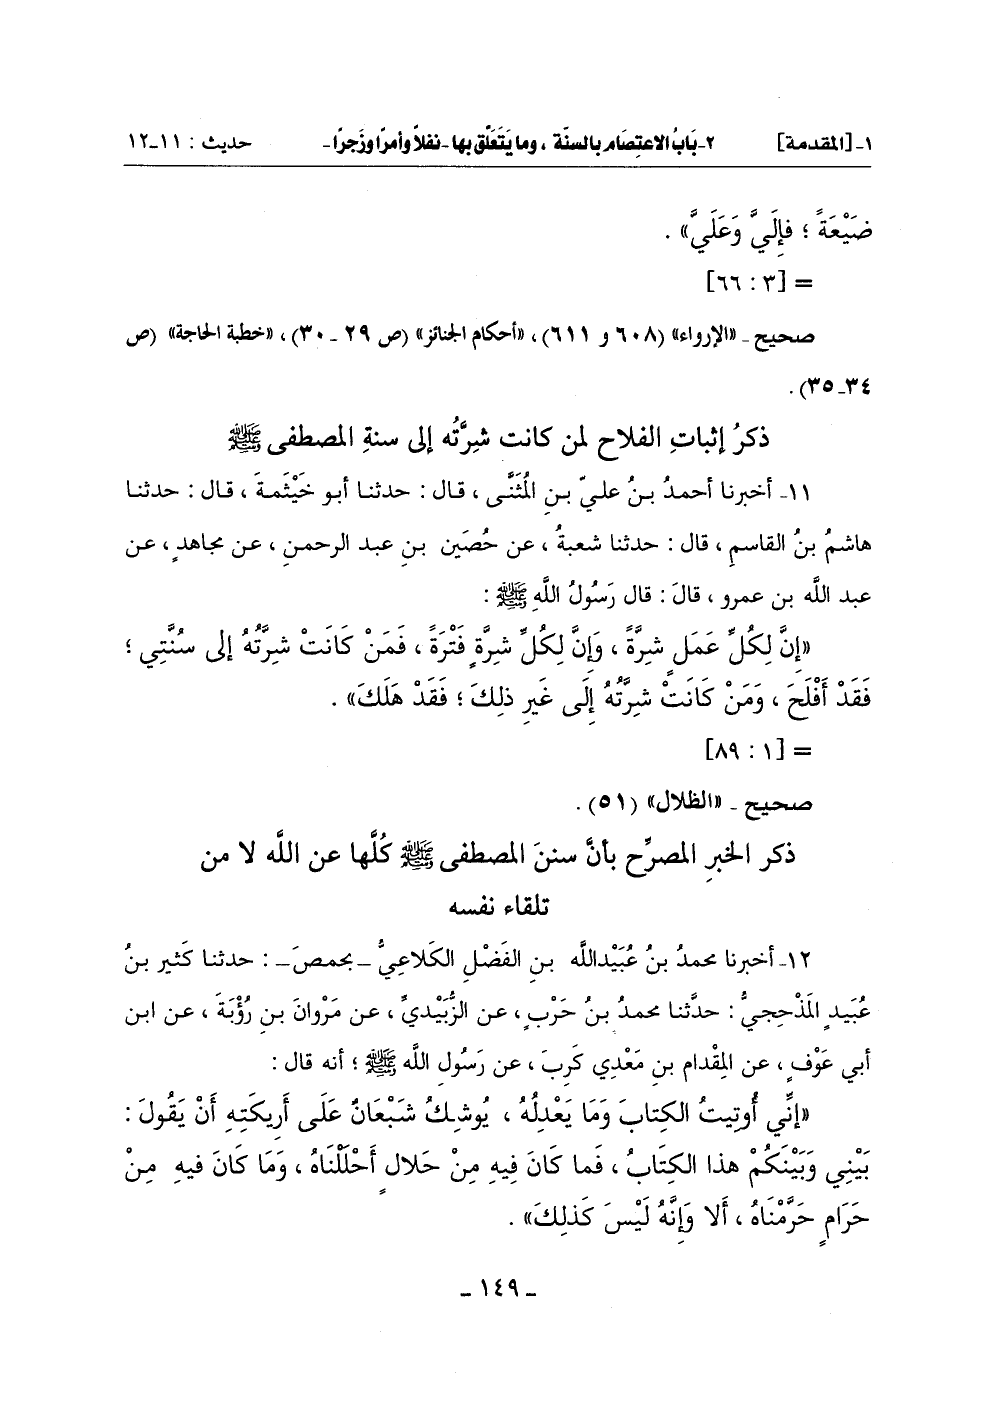 ١ـ [المقدمة] ٢ـ بَابُ الاعتِصَام بالسنّة ، وما يَتَعَلّق بها ـ نفلاً وأمرًا وزَجرًا ـ حديث : ١١ـ١٢
ضَيْعَةً ؛ فإِلَيَّ وَعَلَيَّ» .
= [٣ : ٦٦]
صحيح ـ «الإرواء» (٦٠٨ و ٦١١) ، «أحكام الجنائز» (ص ٢٩ ـ ٣٠) ، «خطبة الحاجة» (ص
٣٤ـ٣٥) .
ذكرُ إثباتِ الفلاح لمن كانت شِرَّتُه إلى سنةِ المصطفى ﷺ
١١ـ أخبرنا أحمدُ بـنُ عليّ بـنِ المُثَنَّى ، قـال : حدثنـا أبـو خَيْثَمـةَ ، قـال : حدثنـا
هاشمُ بنُ القاسمِ ، قال : حدثنا شعبةُ ، عن حُصَين بنِ عبد الرحمنِ ، عن مجاهدٍ ، عن
عبد اللَّه بن عمرو ، قالَ : قال رَسُولُ اللَّهِ ﷺ :
«إنَّ لِكُلِّ عَمَلٍ شِرَّةً ، وَإِنَّ لِكُلِّ شِرةٍ فَتْرَةً ، فَمَنْ كَانَتْ شِرَّتُهُ إلى سُنَّتِي ؛
فَقَدْ أَفْلَحَ ، وَمَنْ كَانَتْ شِرَّتُهُ إِلَى غَيرِ ذلِكَ ؛ فَقَدْ هَلَكَ» .
= [١ : ٨٩]
صحيح ـ «الظلال» (٥١) .
ذكر الخبرِ المصرِّح بأنَّ سننَ المصطفى ﷺ كُلَّها عن اللَّه لا من
تلقاء نفسه
١٢ـ أخبرنا محمدُ بنُ عُبَيْداللَّه بنِ الفَضْلِ الكَلاعِيُّ ـ بحمصَ ـ : حدثنـا كَثير بـنُ
عُبَيدٍ المَذْحِجيُّ : حدَّثنا محمدُ بـنُ حَرْبٍ ، عن الزُّبَيْديِّ ، عن مَرْوانَ بـنِ رُؤْبَةَ ، عن ابن
أبي عَوْفٍ ، عن المِقْدام بنِ مَعْدِي كَرِبَ ، عن رَسُولِ اللَّه ﷺ ؛ أنه قال :
«إنِّي أُوتِيتُ الكِتابَ وَمَا يَعْدِلُهُ ، يُوشِـكُ شَبْعَانٌ عَلَى أَرِيكَتِهِ أَنْ يَقُولَ :
بَيْنِي وَبَيْنَكُمْ هذا الكِتَابُ ، فَما كَانَ فِيهِ مِنْ حَلالٍ أَحْلَلْنَاهُ ، وَمَا كَانَ فيهِ مِـنْ
حَرَامٍ حَرَّمْنَاهُ ، أَلا وَإِنَّهُ لَيْسَ كَذلِكَ» .
ـ ١٤٩ ـ